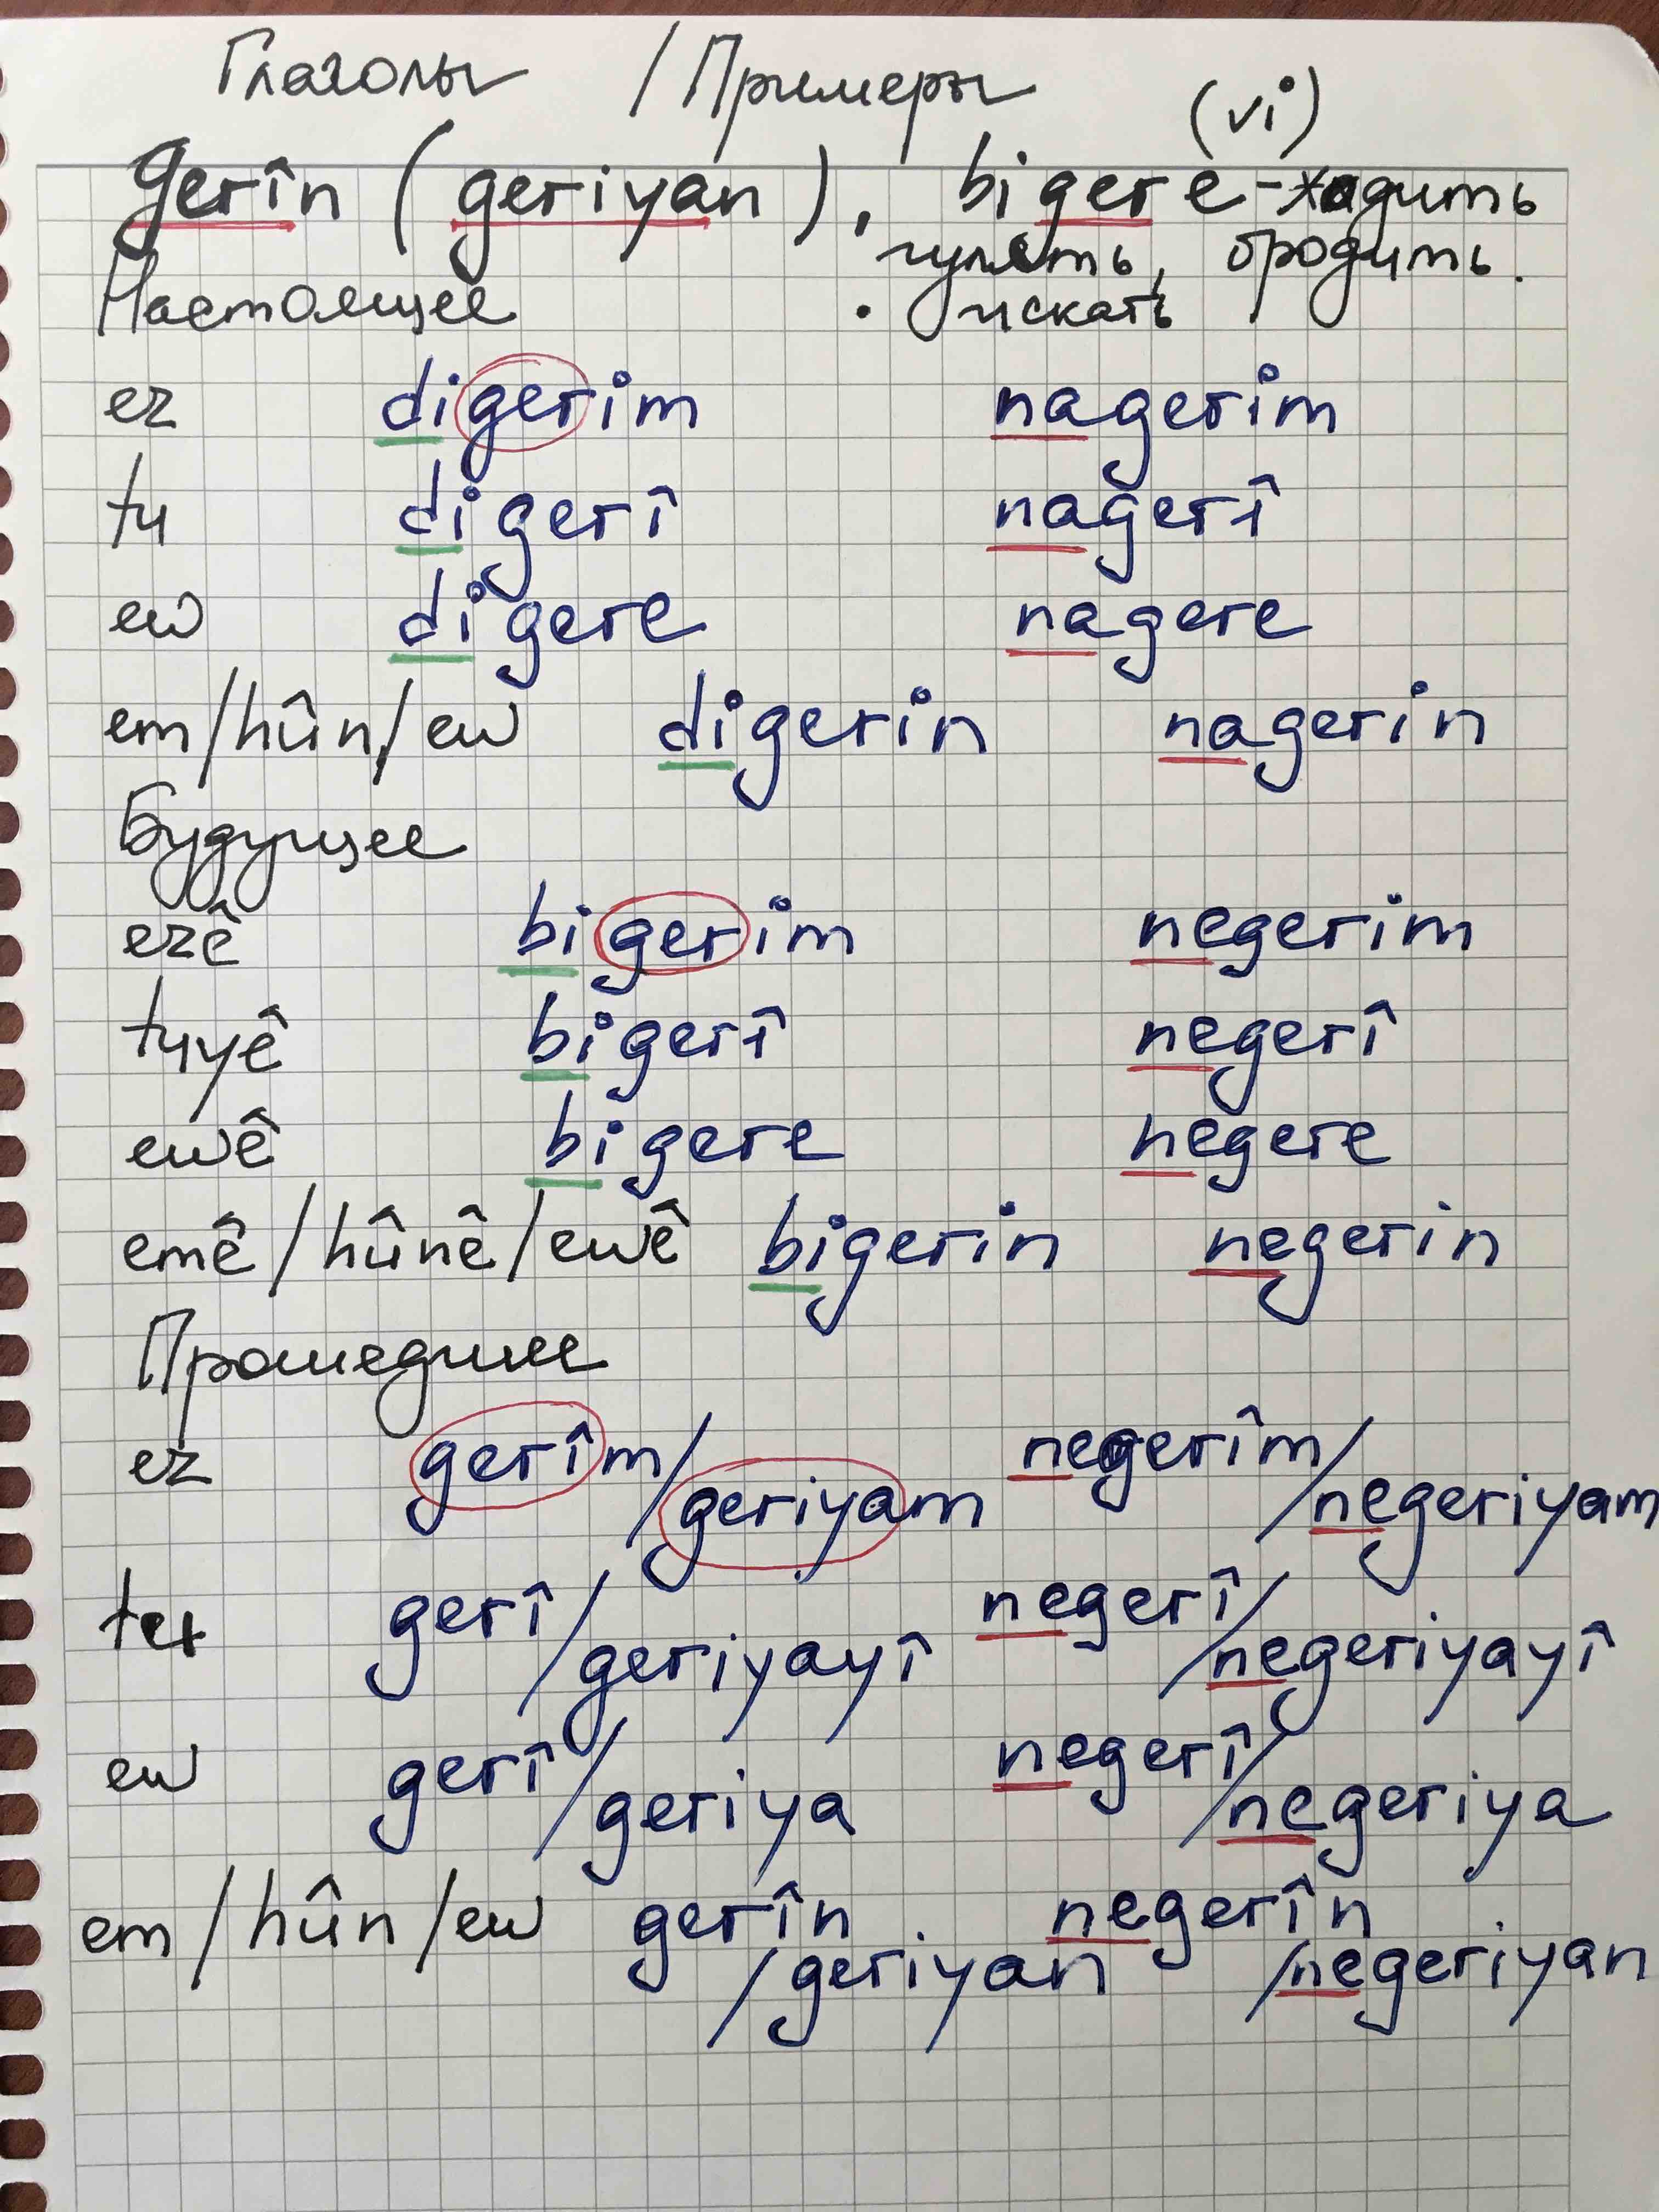 Глаголы / Примеры
(vi)
gerîn (geriyan), bigere - ходить
• гулять, бродить.
Настоящее • искать
ez digerim nagerim
tu digerî nagerî
ew digere nagere
em/hûn/ew digerin nagerin
Будущее
ezê bigerim negerim
tuyê bigerî negerî
ewê bigere negere
emê/hûnê/ewê bigerin negerin
Прошедшее
ez gerîm/ negerîm/
geriyam negeriyam
tu gerî/ negerî/
geriyayî negeriyayî
ew gerî/ negerî/
geriya negeriya
em/hûn/ew gerîn negerîn
/geriyan /negeriyan